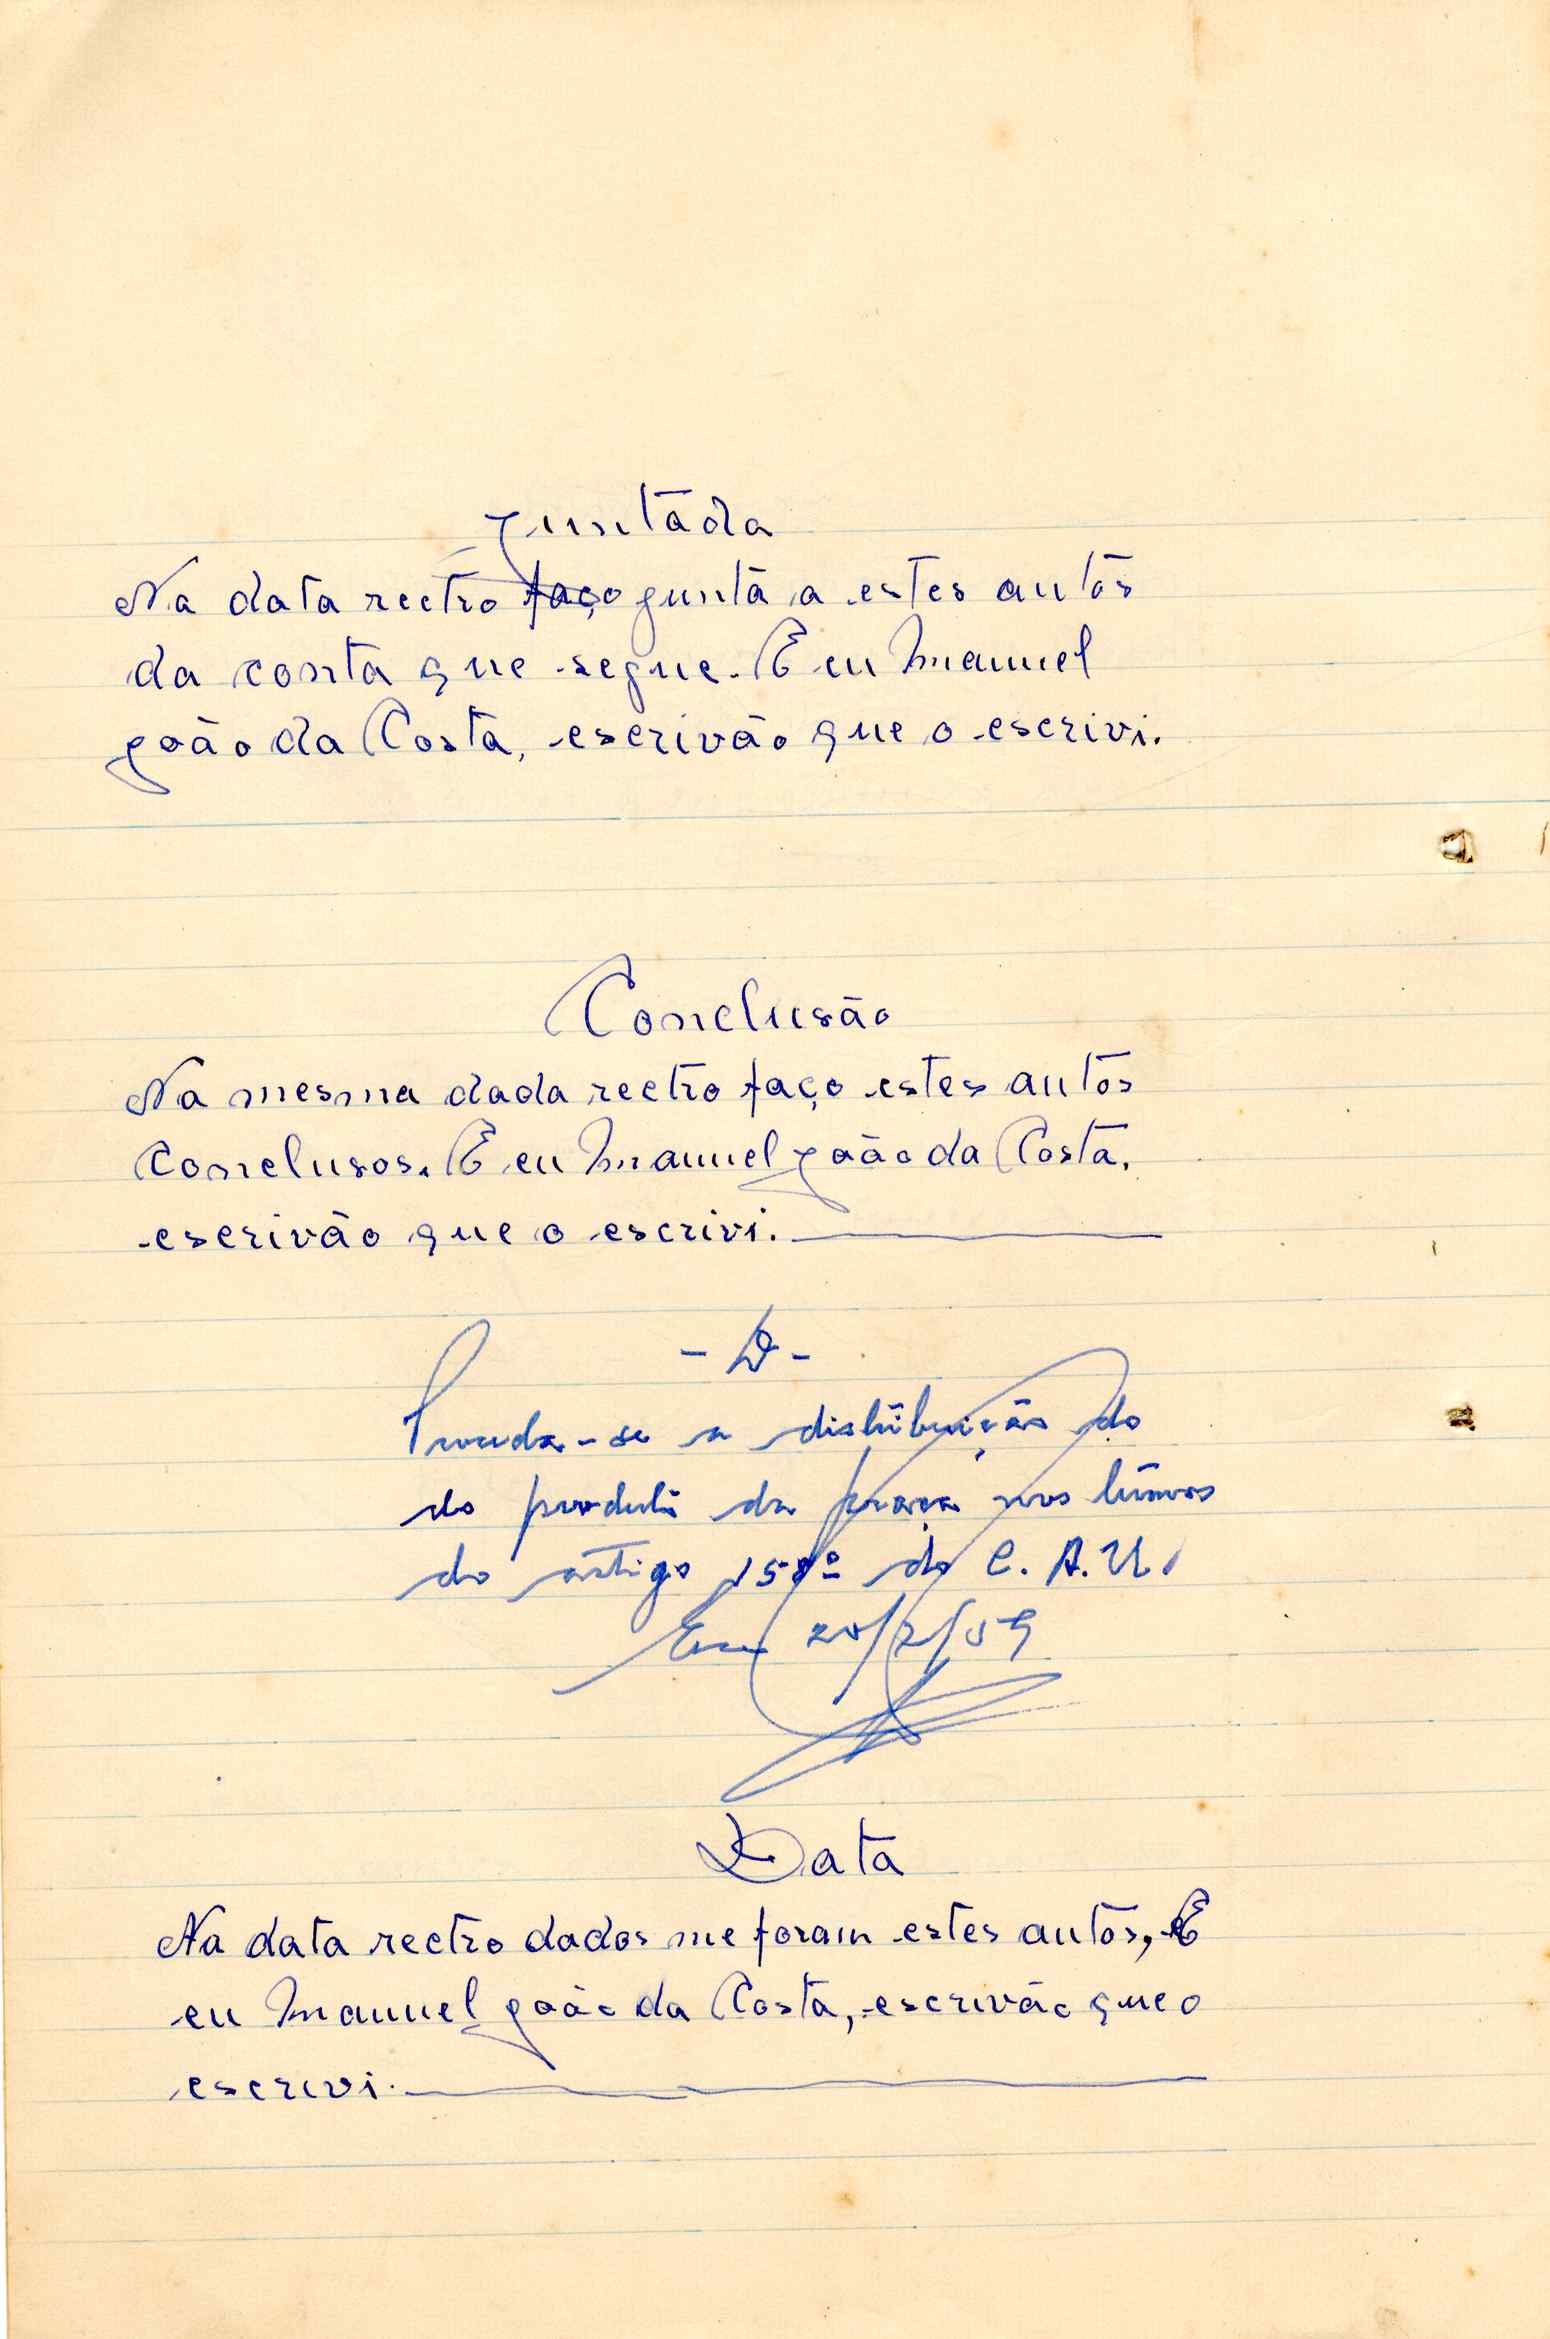 Juntada
Na data rectro faço junta a estes autos
da conta que segue. E eu Manuel
João da Costa, escrivão que o escrivi.
Conclusão
Na mesma dada rectro faço estes autos
conclusos. E eu Manuel João da Costa,
escrivão que o escrivi.
- D -
Proceda-se a distribuição do
do produto da praça nos termos
do artigo do C. A. U.
Em 20/2/59
Data
Na data rectro dados me foram estes autos, E
eu Manuel João da Costa, escrivão que o
escrivi.